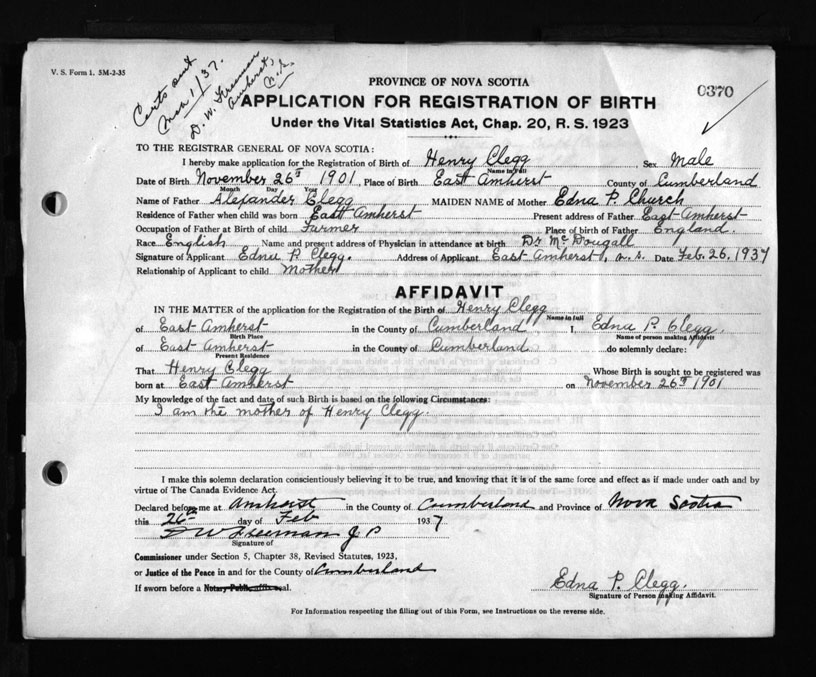 V. S. Form 1. 5M-3-35
Certs sent
Mch 1/37.
D. W. Freeman
Amherst,
N.S.
0370
PROVINCE OF NOVA SCOTIA
APPLICATION FOR REGISTRATION OF BIRTH
Under the Vital Statistics Act, Chap. 20, R. S. 1923
TO THE REGISTRAR GENERAL OF NOVA SCOTIA:
I hereby make application for the Registration of Birth of Henry Clegg Sex Male
Name in Full
Date of Birth November 26th 1901, Place of Birth East Amherst County of Cumberland
Month Day Year
Name of Father Alexander Clegg MAIDEN NAME of Mother Edna P. Church
Residence of Father when child was born East Amherst Present address of Father East Amherst
Occupation of Father at Birth of child Farmer Place of birth of Father England.
Race English Name and present address of Physician in attendance at birth Dr McDougall
Signature of Applicant Edna P. Clegg. Address of Applicant East Amherst, N. S. Date Feb. 26. 1937
Relationship of Applicant to child Mother
AFFIDAVIT
IN THE MATTER of the application for the Registration of the Birth of Henry Clegg
Name in full
of East Amherst in the County of Cumberland I, Edna P. Clegg.
Birth Place Name of person making Affidavit
of East Amherst in the County of Cumberland do solemnly declare:
Present Residence
That Henry Clegg Whose Birth is sought to be registered was
born at East Amherst on November 26th 1901
My knowledge of the fact and date of such Birth is based on the following Circumstances:
I am the mother of Henry Clegg.
I make this solemn declaration conscientiously believing it to be true, and knowing that it is of the same force and effect as if made under oath and by
virtue of The Canada Evidence Act.
Declared before me at Amherst in the County of Cumberland and Province of Nova Scotia
this 26th day of Feb 1937
D W Freeman J P
Signature of
Commissioner under Section 5, Chapter 38, Revised Statutes, 1923,
or Justice of the Peace in and for the County of Cumberland
If sworn before a Notary Public affix seal.
Edna P. Clegg.
Signature of Person making Affidavit.
For Information respecting the filling out of this Form, see Instructions on the reverse side.